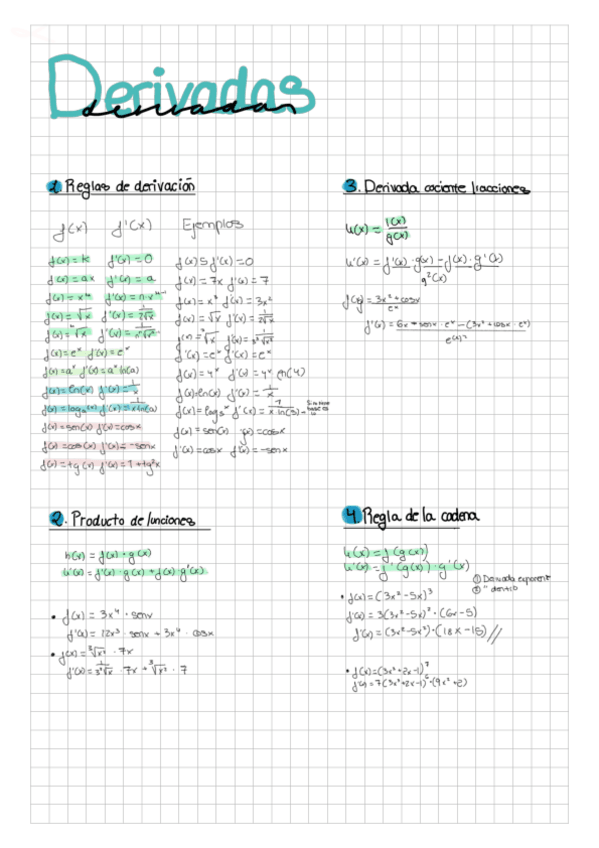 Derivadas
derivadas
1. Reglas de derivación
f(x) f'(x) Ejemplos
f(x) = k f'(x) = 0 f(x) = 5 f'(x) = 0
f(x) = ax f'(x) = a f(x) = 7x f'(x) = 7
f(x) = xⁿ f'(x) = n·xⁿ⁻¹ f(x) = x³ f'(x) = 3x²
f(x) = √x f'(x) = 1/2√x f(x) = √x f'(x) = 1/2√x
f(x) = ⁿ√x f'(x) = 1/n ⁿ√xⁿ⁻¹ f(x) = ³√x f'(x) = 1/3 ³√x²
f(x) = eˣ f'(x) = eˣ f'(x) = eˣ f'(x) = eˣ
f(x) = aˣ f'(x) = aˣ ln(a) f(x) = 4ˣ f'(x) = 4ˣ ln(4)
f(x) = ln(x) f'(x) = 1/x f(x) = ln(x) f'(x) = 1/x
f(x) = logₐ(x) f'(x) = 1/x ln(a) f(x) = log₅ˣ f'(x) = 1/x ln(5)
f(x) = sen(x) f'(x) = cosx f(x) = sen(x) f'(x) = cosx
f(x) = cos(x) f'(x) = -senx f'(x) = cosx f'(x) = -senx
f(x) = tg(x) f'(x) = 1 + tg²x
2. Producto de funciones
h(x) = f(x) · g(x)
h'(x) = f'(x) · g(x) + f(x) · g'(x)
• f(x) = 3x⁴ · senx
f'(x) = 12x³ · senx + 3x⁴ · cosx
• f(x) = ³√x² · 7x
f'(x) = 1/3 ³√x · 7x + ³√x² · 7
3. Derivada cociente fracciones
h(x) = f(x)/g(x)
h'(x) = f'(x) · g(x) - f(x) · g'(x)/g²(x)
f(x) = 3x² + cosx/eˣ
f'(x) = 6x + senx · eˣ - (3x² + cosx · eˣ)/e(x)²
4. Regla de la cadena
h(x) = f(g(x))
h'(x) = f'(g(x)) · g'(x)
① Derivada exponente
② " dentro
• f(x) = (3x² - 5x)³
f'(x) = 3(3x² - 5x)² · (6x - 5)
f'(x) = (3x² - 5x²) · (18x - 15) //
• f(x) = (3x³ + 2x - 1)⁷
f'(x) = 7(3x³ + 2x - 1)⁶ · (9x² + 2)